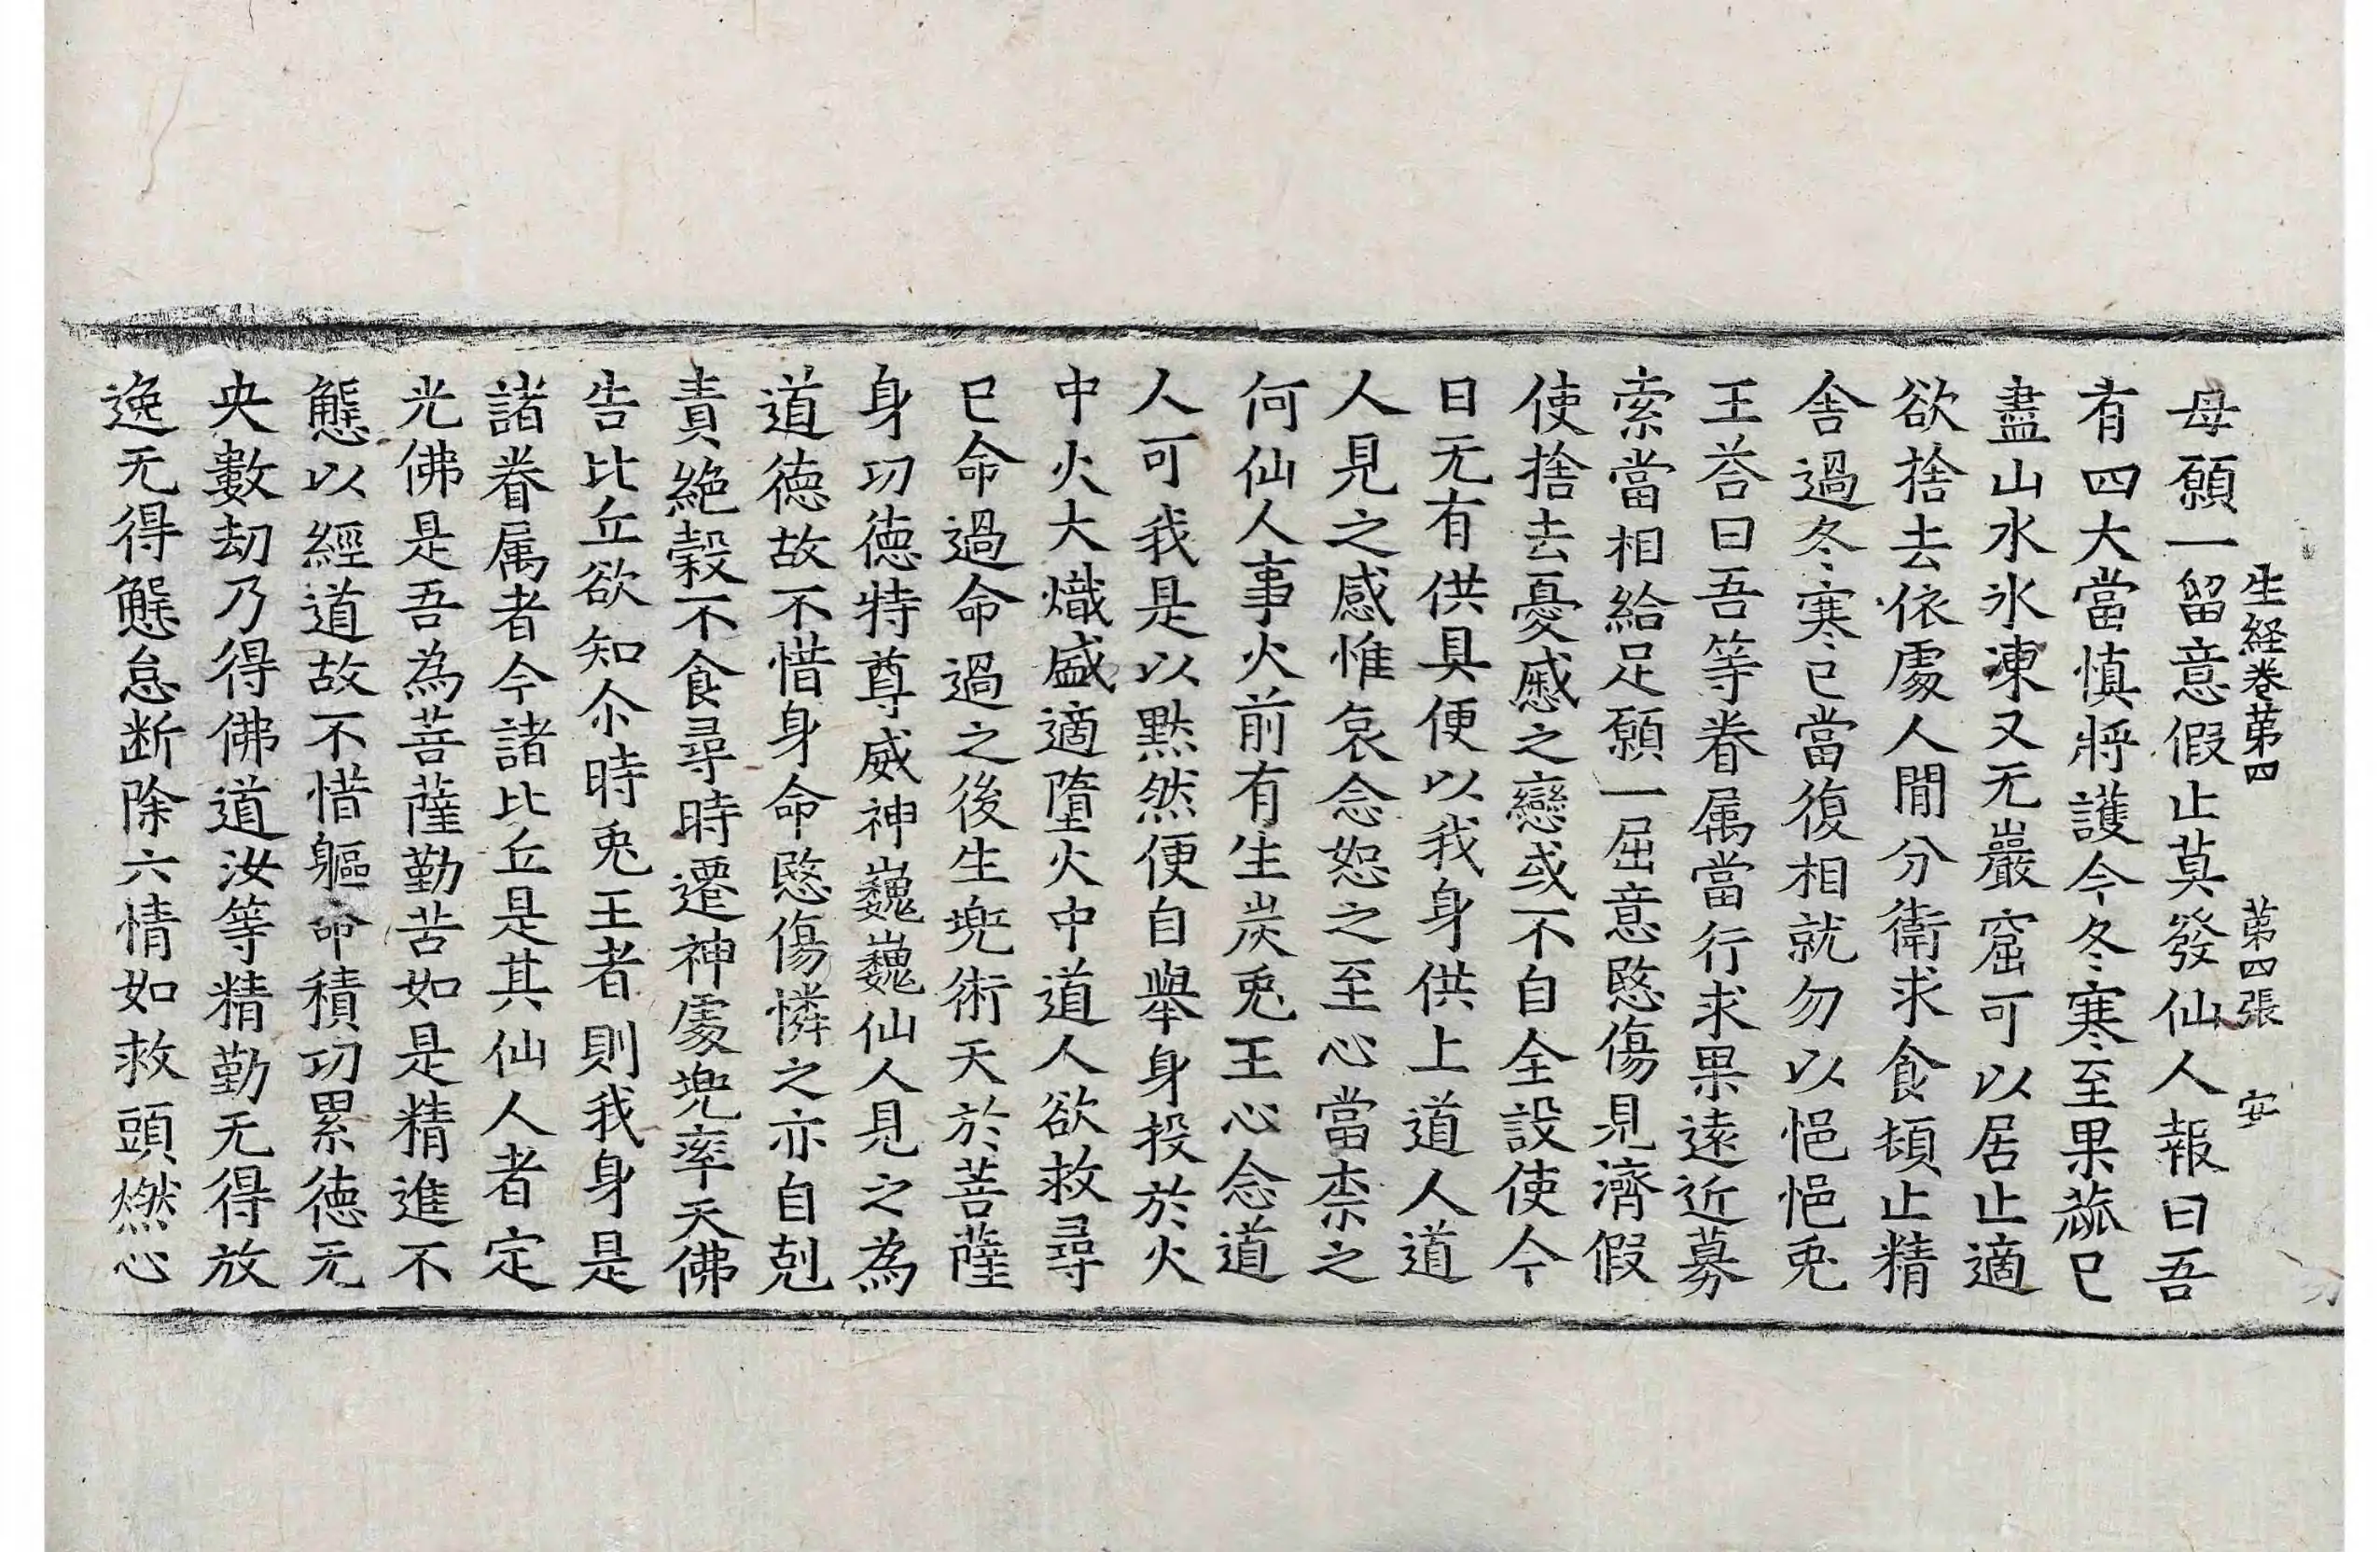 生経巻苐四　苐四張　安
母願一留意假止莫發仙人報曰吾
有四大當慎將護今冬寒至果蓏已
盡山水氷凍又无巖窟可以居止適
欲捨去依處人間分衛求食頓止精
舍過冬寒已當復相就勿以悒悒兎
王荅曰吾等眷属當行求果遠近募
索當相給足願一屈意愍傷見濟假
使捨去憂慼之戀或不自全設使今
日无有供具便以我身供上道人道
人見之感惟哀念恕之至心當柰之
何仙人事火前有生炭兎王心念道
人可我是以黙然便自舉身投於火
中火大熾盛適墮火中道人欲救尋
已命過命過之後生兜術天於菩薩
身功德特尊威神巍巍仙人見之為
道德故不惜身命愍傷憐之亦自剋
責絶穀不食尋時遷神處兜率天佛
告比丘欲知尒時兎王者則我身是
諸眷属者今諸比丘是其仙人者定
光佛是吾為菩薩勤苦如是精進不
懈以經道故不惜軀命積功累德无
央數劫乃得佛道汝等精勤无得放
逸无得懈怠断除六情如救頭燃心